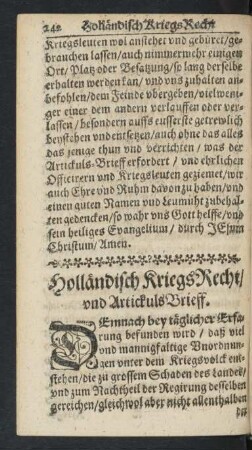 242 Holländisch Kriegs Recht
Kriegsleuten wol anstehet vnd gebüret/ge-
brauchen lassen/auch nimmerwehr einigen
Ort/Platz oder Besatzung/so lang derselbe
erhalten werden kan/vnd vns zuhalten an-
befohlen/dem Feinde vbergeben/vielweni-
ger einer dem andern verlauffen oder ver-
lassen/besondern auffs eusserste getrewlich
beystehen vnd entsetzen/auch ohne das alles
das jenige thun vnd verrichten/was der
Artickuls-Brieff erfordert/vnd ehrlichen
Officirern vnd Kriegsleuten geziemet/wir
auch Ehre vnd Ruhm davon zu haben/vnd
einen guten Namen vnd Leumüht zubehal-
ten gedencken/so wahr vns Gott helffe/vnd
sein heiliges Evangelium/durch JEsum
Christum/Amen.
Holländisch Kriegs Recht/
vnd Artickuls Brieff.
DEmnach bey täglicher Erfa-
rung befunden wird/daß viel
vnd mannigfaltige Vnordnun-
gen vnter dem Kriegsvolck ent-
stehen/die zu grossem Schaden des Landes/
vnd zum Nachtheil der Regirung desselben
gereichen/gleichwol aber nicht allenthalben